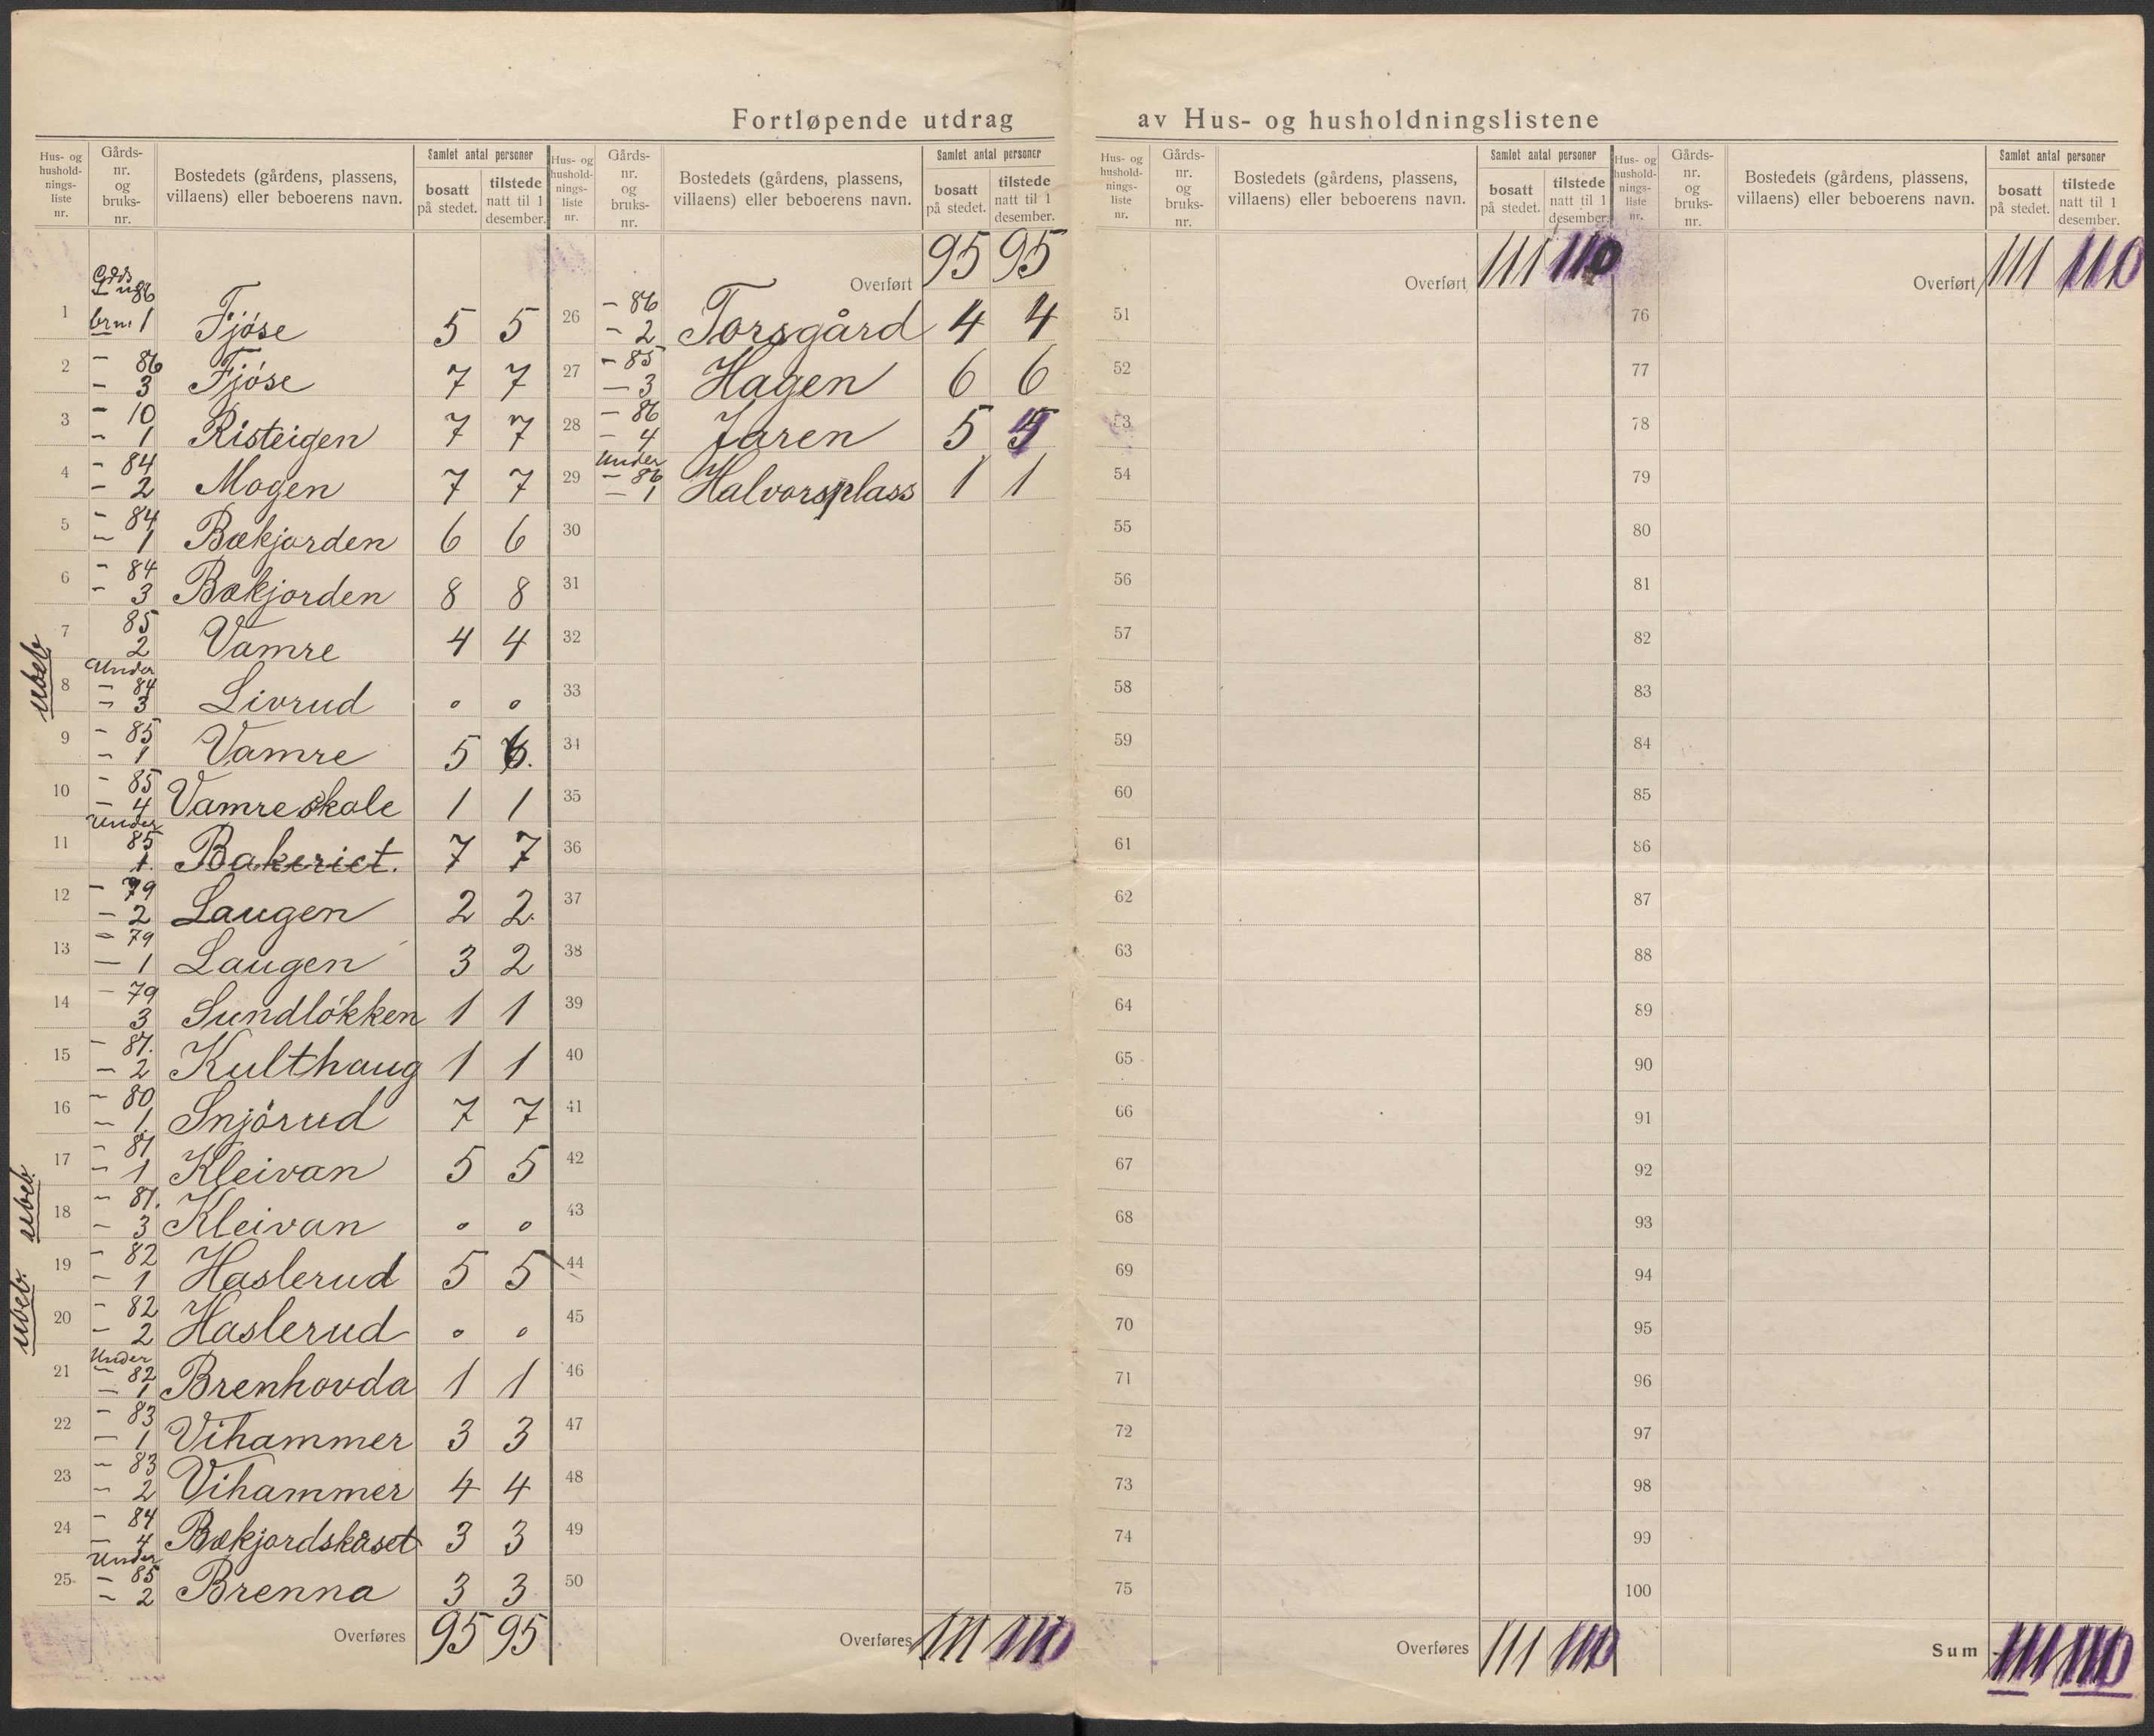 Fortløpende utdrag av Hus- og husholdningslistene
Hus- og husholdnings-liste nr. Gårds-nr. og bruks-nr. Bostedets (gårdens, plassens, villaens) eller beboerens navn. Samlet antal personer bosatt på stedet. tilstede natt til 1 desember.
1 86 brn. 1 Fjóse 5 5
2 – 86 – 3 Fjóse 7 7
3 – 10 – 1 Risteigen 7 7
4 – 84 – 2 Mogen 7 7
5 – 84 – 1 Bækjorden 6 6
6 – 84 – 3 Bækjorden 8 8
7 85 2 Vamre 4 4
ubeb. 8 Under – 84 – 3 Livrud 0 0
9 – 85 – 1 Vamre 5 6.
10 – 85 – 4 Vamre skole 1 1
11 Under 85 1. Bakeriet. 7 7
12 – 79 – 2 Laugen 2 2.
13 – 79 – 1 Laugen 3 2
14 – 79 3 Sundlókken 1 1
15 – 81. – 2 Kulthaug 1 1
16 – 80 – 1. Snjórud 7 7
17 – 81 – 1 Kleivan 5 5
ubeb. 18 – 81. – 3 Kleivan 0 0
19 – 82 – 1 Haslerud 5 5
ubeb. 20 – 82 – 2 Haslerud 0 0
21 Under – 82 – 1 Brenhovda 1 1
22 – 83 – 1 Vihammer 3 3
23 – 83 – 2 Vihammer 4 4
24 – 84 – 4 Bækjordskåset 3 3
25 Under – 85 – 2 Brenna 3 3
Overføres 95 95
Hus- og husholdnings-liste nr. Gårds-nr. og bruks-nr. Bostedets (gårdens, plassens, villaens) eller beboerens navn. Samlet antal personer bosatt på stedet. tilstede natt til 1 desember.
Overført 95 95
26 – 86 – 2 Torsgård 4 4
27 – 85 – 3 Hagen 6 6
28 – 86 – 4 Jaren 5
29 Under – 86 – 1 Halvorsplass 1 1
30
31
32
33
34
35
36
37
38
39
40
41
42
43
44
45
46
47
48
49
50
Overføres 111 110
Hus- og husholdnings-liste nr. Gårds-nr. og bruks-nr. Bostedets (gårdens, plassens, villaens) eller beboerens navn. Samlet antal personer bosatt på stedet. tilstede natt til 1 desember.
Overført 111 110
51
52
53
54
55
56
57
58
59
60
61
62
63
64
65
66
67
68
69
70
71
72
73
74
75
Overføres 111 110
Hus- og husholdnings-liste nr. Gårds-nr. og bruks-nr. Bostedets (gårdens, plassens, villaens) eller beboerens navn. Samlet antal personer bosatt på stedet. tilstede natt til 1 desember.
Overført 111 110
76
77
78
79
80
81
82
83
84
85
86
87
88
89
90
91
92
93
94
95
96
97
98
99
100
Sum 111 110